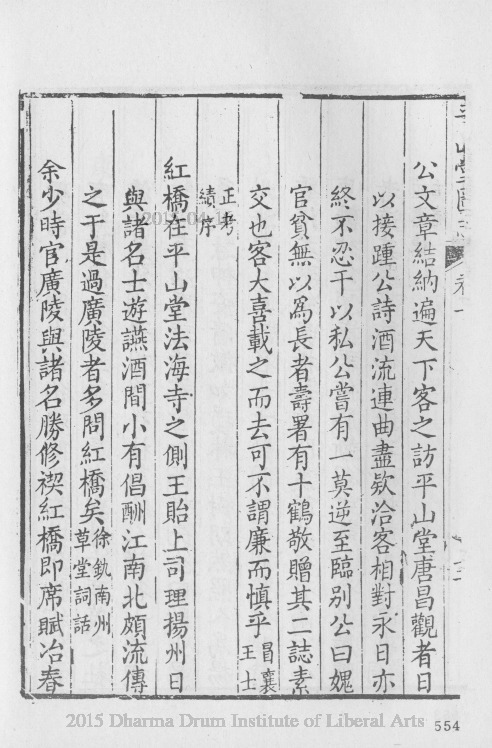 公文章結納遍天下客之訪平山堂唐昌觀者日
以接踵公詩酒流連曲盡欵洽客相對永日亦
終不忍干以私公嘗有一莫逆至臨別公曰媿
官貧無以爲長者壽署有十鶴敬贈其二誌素
交也客大喜載之而去可不謂廉而慎乎冒襄
王士
正考
績序
紅橋在平山堂法海寺之側王貽上司理揚州日
與諸名士遊讌酒間小有倡酬江南北頗流傳
之于是過廣陵者多問紅橋矣徐釚南州
草堂詞話
余少時官廣陵與諸名勝修禊紅橋即席賦冶春
2015 Dharma Drum Institute of Liberal Arts
554